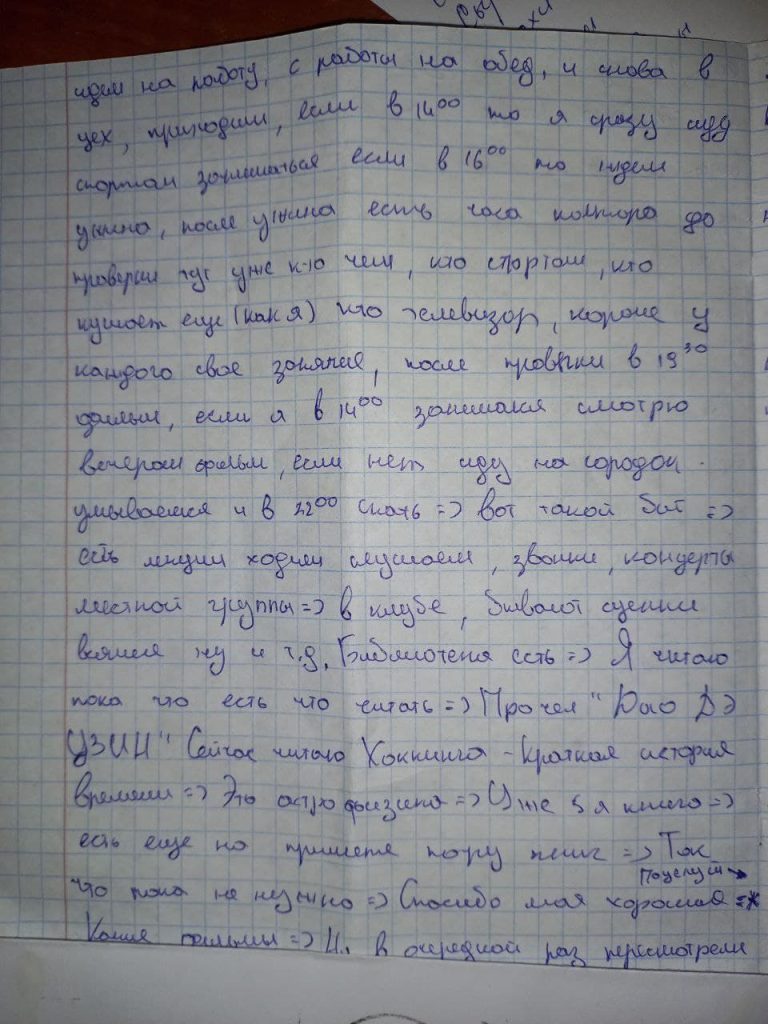 идем на работу, с работы на обед, и снова в
цех, приходим, если в 14⁰⁰ то я сразу иду
спортом заниматься если в 16⁰⁰ то ждем
ужина, после ужина есть часа полтора до
проверки тут уже к-то чем, кто спортом, кто
кушает еще (как я) кто телевизор, короче у
каждого свое занятие, после проверки в 19³⁰
если я в 14⁰⁰ занимался смотрю
вечером фильм, если нет иду на городок.
умываемся и в 22⁰⁰ спать => вот такой быт =>
есть лекции ходим слушаем, звонки, концерты
местной группы => в клубе, бывают сценки
всякие ну и т.д. Библиотека есть => Я читаю
пока что есть что читать => Прочел "Дао Дэ
Цзин" Сейчас читаю Хоккинга - Краткая история
времени => Это астрофизика => Уже 5я книга =>
есть еще на примете пару книг => Так
Поцелуй →
что пока не нужно => Спасибо моя хорошая =*
Какие фильмы => в очередной раз пересмотрели